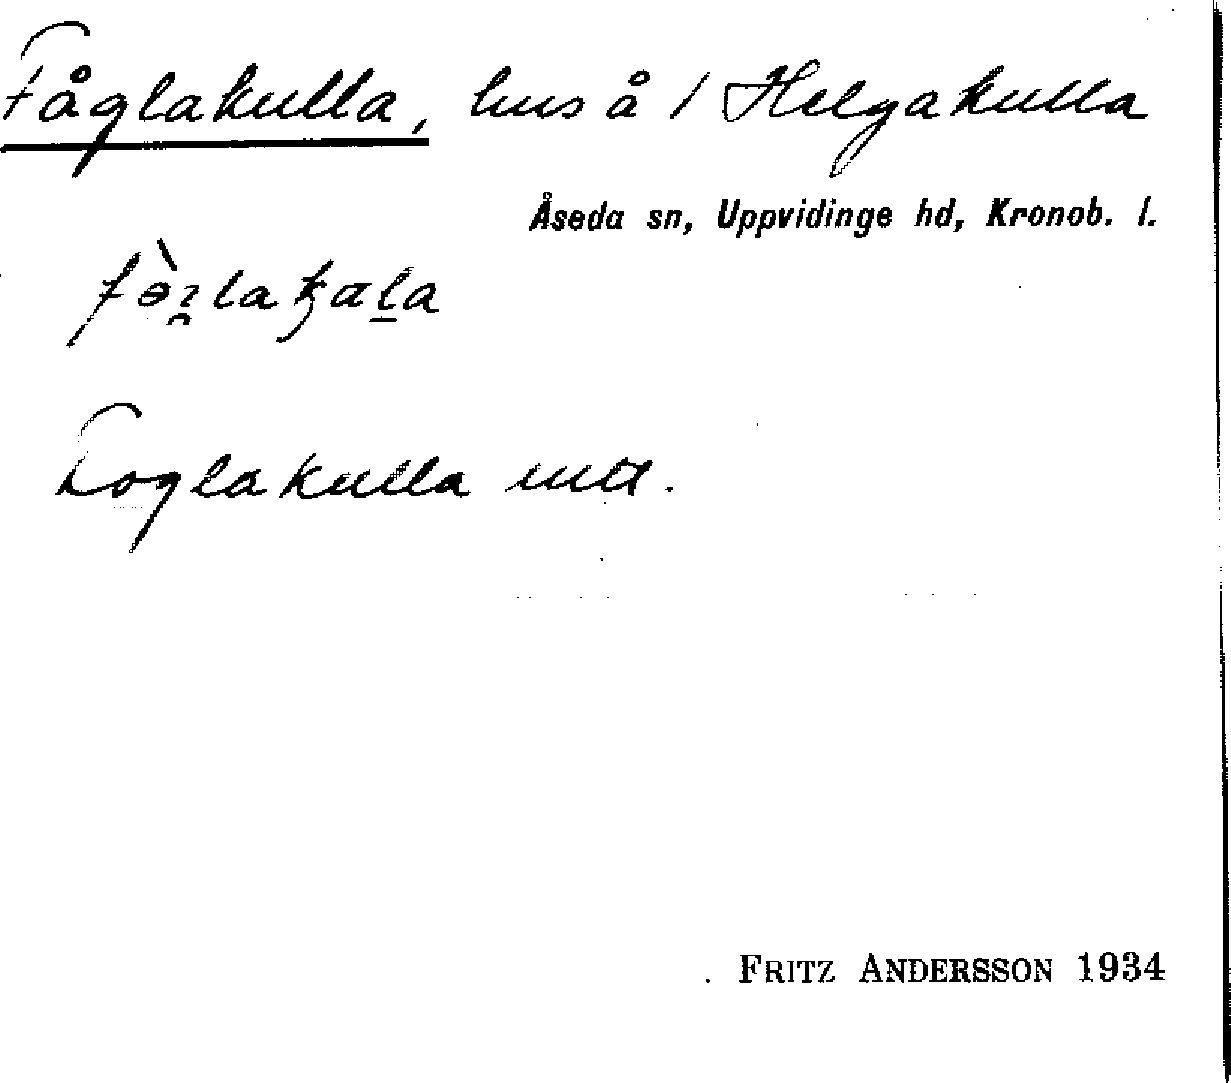 Fåglakulla, hus å 1 Helgakulla
Åseda sn, Uppvidinge hd, Kronob. l.
Foglakulla
FRITZ ANDERSSON 1934